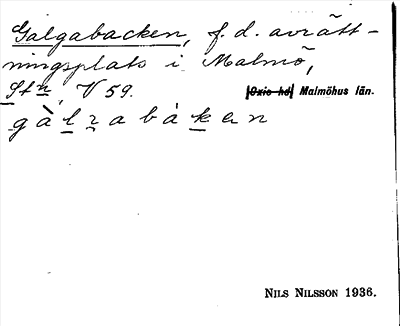 Galgabacken, f.d. avrätt-
ningsplats i Malmö,
Stn, V 59. Oxie hd Malmöhus län.
gàlrabàken
NILS NILSSON 1936.